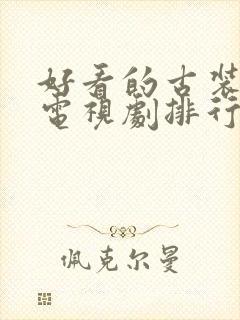 好看的古装
電視劇排行
佩克尔曼